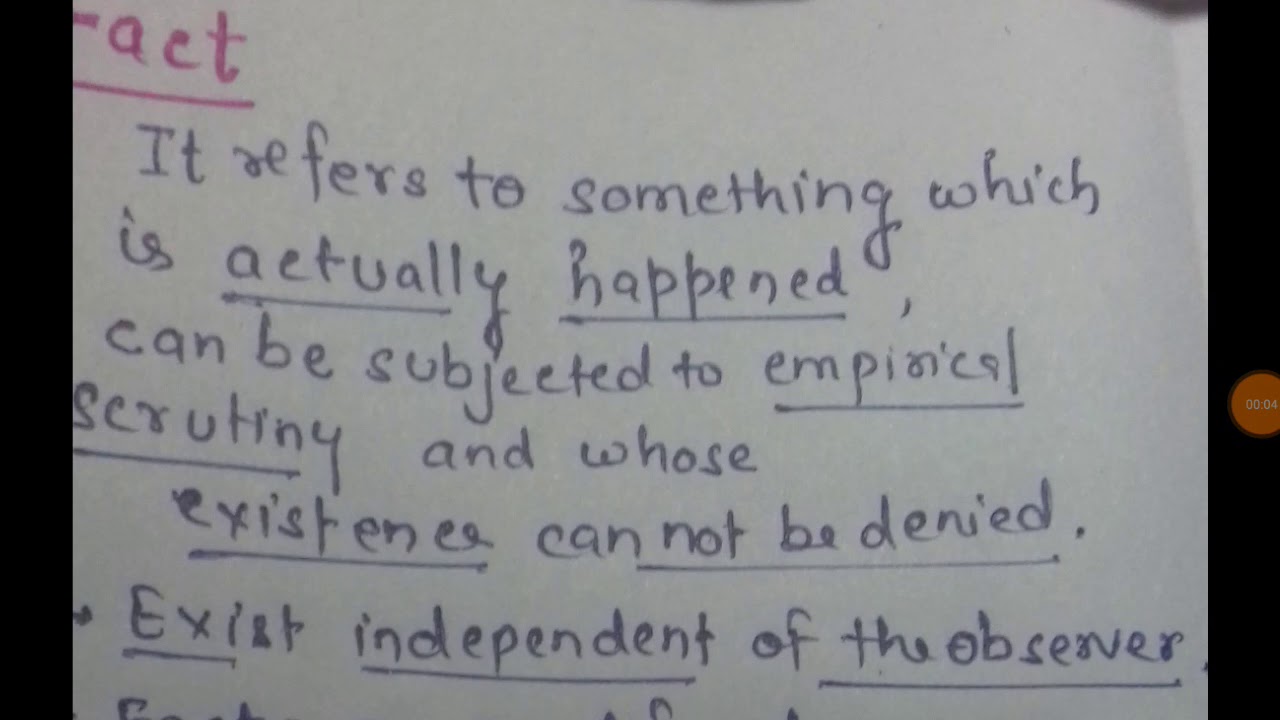 -act
It refers to something which
is actually happened,
can be subjected to empirical
scrutiny and whose
existence cannot be denied.
• Exist independent of the observer.
00:04